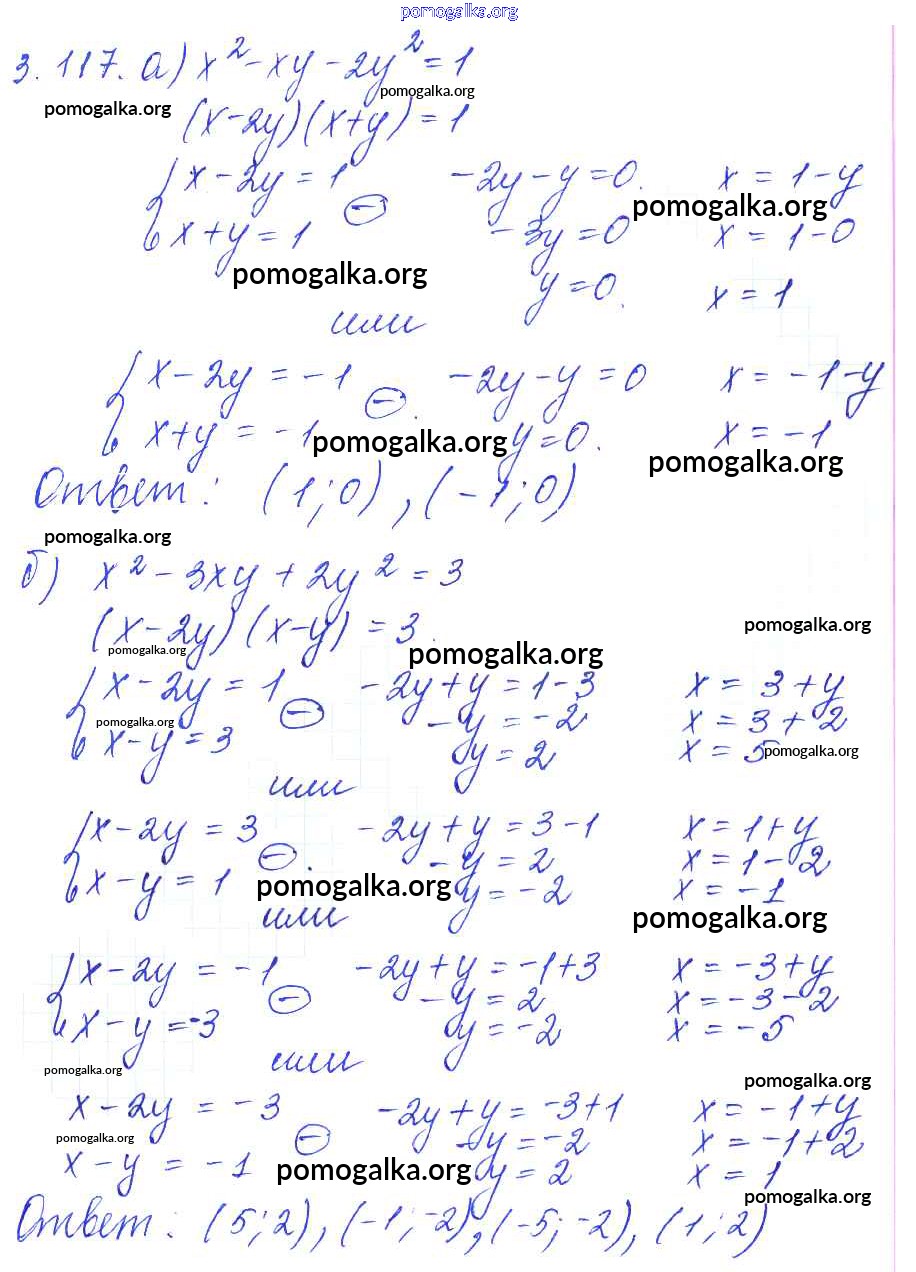 pomogalka.org
3.117. а) x² - xy - 2y² = 1
pomogalka.org pomogalka.org
(x-2y)(x+y) = 1
{ x - 2y = 1 -2y - y = 0. x = 1-y
pomogalka.org
x + y = 1 ⊖ -3y = 0 x = 1-0
pomogalka.org
y = 0. x = 1
или
{ x - 2y = -1 ⊖. -2y - y = 0 x = -1-y
x+y = -1 pomogalka.org y = 0. x = -1
pomogalka.org
Ответ: (1;0), (-1;0)
pomogalka.org
б) x² - 3xy + 2y² = 3
(x-2y)(x-y) = 3.
pomogalka.org pomogalka.org pomogalka.org
{ x - 2y = 1 ⊖ -2y + y = 1-3 x = 3+y
pomogalka.org
-y = -2 x = 3+2
x - y = 3 y = 2 x = 5 pomogalka.org
или
{ x - 2y = 3 ⊖. -2y + y = 3-1 x = 1+y
-y = 2 x = 1-2
x - y = 1 pomogalka.org y = -2 x = -1
или pomogalka.org
{ x - 2y = -1 ⊖ -2y + y = -1+3 x = -3+y
-y = 2 x = -3-2
x - y = -3 y = -2 x = -5
или
pomogalka.org pomogalka.org
x - 2y = -3 ⊖ -2y + y = -3+1 x = -1+y
pomogalka.org
-y = -2 x = -1+2
x - y = -1 pomogalka.org y = 2 x = 1
pomogalka.org
Ответ: (5;2), (-1;-2), (-5;-2), (1;2)